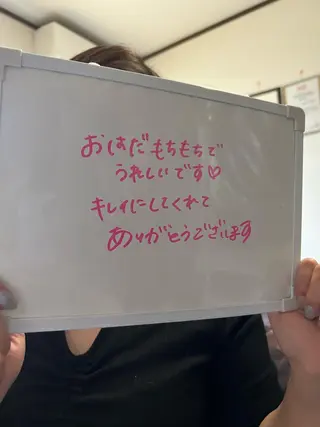 おはだもちもちで
うれしいです♡
キレイにしてくれて
ありがとうございます